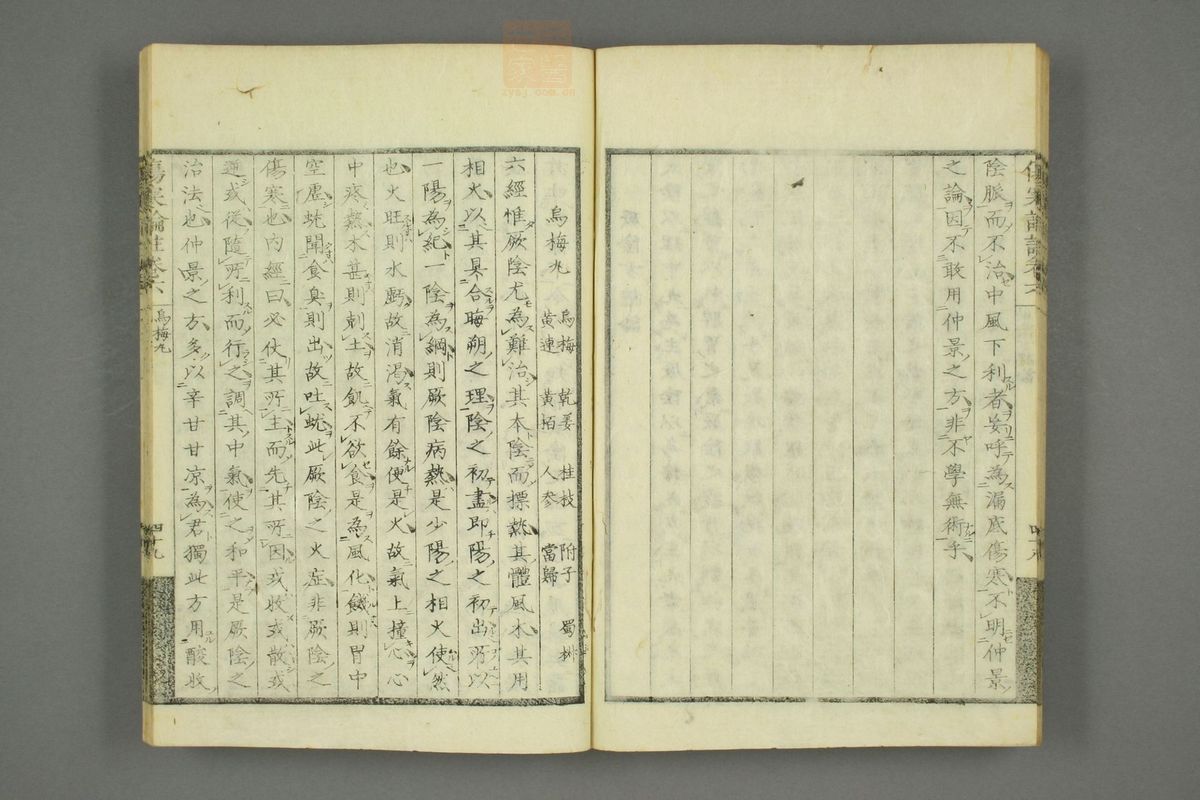 陰脈而不治中風下利者妄呼為漏底傷寒不明仲景
之論因不敢用仲景之方非不學無術乎
傷寒論註卷六
烏梅丸 烏梅 乾姜 桂枝 附子 蜀椒
黄連 黄栢 人参 當歸
六經惟厥陰尤為難治其本陰而摽熱其體風木其用
相火以其具合晦朔之理陰之初盡即陽之初出所以
一陽為紀一陰為綱則厥陰病熱是少陽之相火使然
也火旺則水虧故消渴氣有餘便是火故氣上撞心心
中疼熱木甚則剋土故飢不欲食是為風化餓則胃中
空虛蚘聞食臭則出故吐蚘此厥陰之火症非厥陰之
傷寒也内經曰必伏其所主而先其所因或收或散或
逆或從隨所利而行之調其中氣使之和平是厥陰之
治法也仲景之方多以辛甘甘凉為君獨此方用酸收
傷寒論註卷六
烏梅丸
四十九
zysj.com.cn